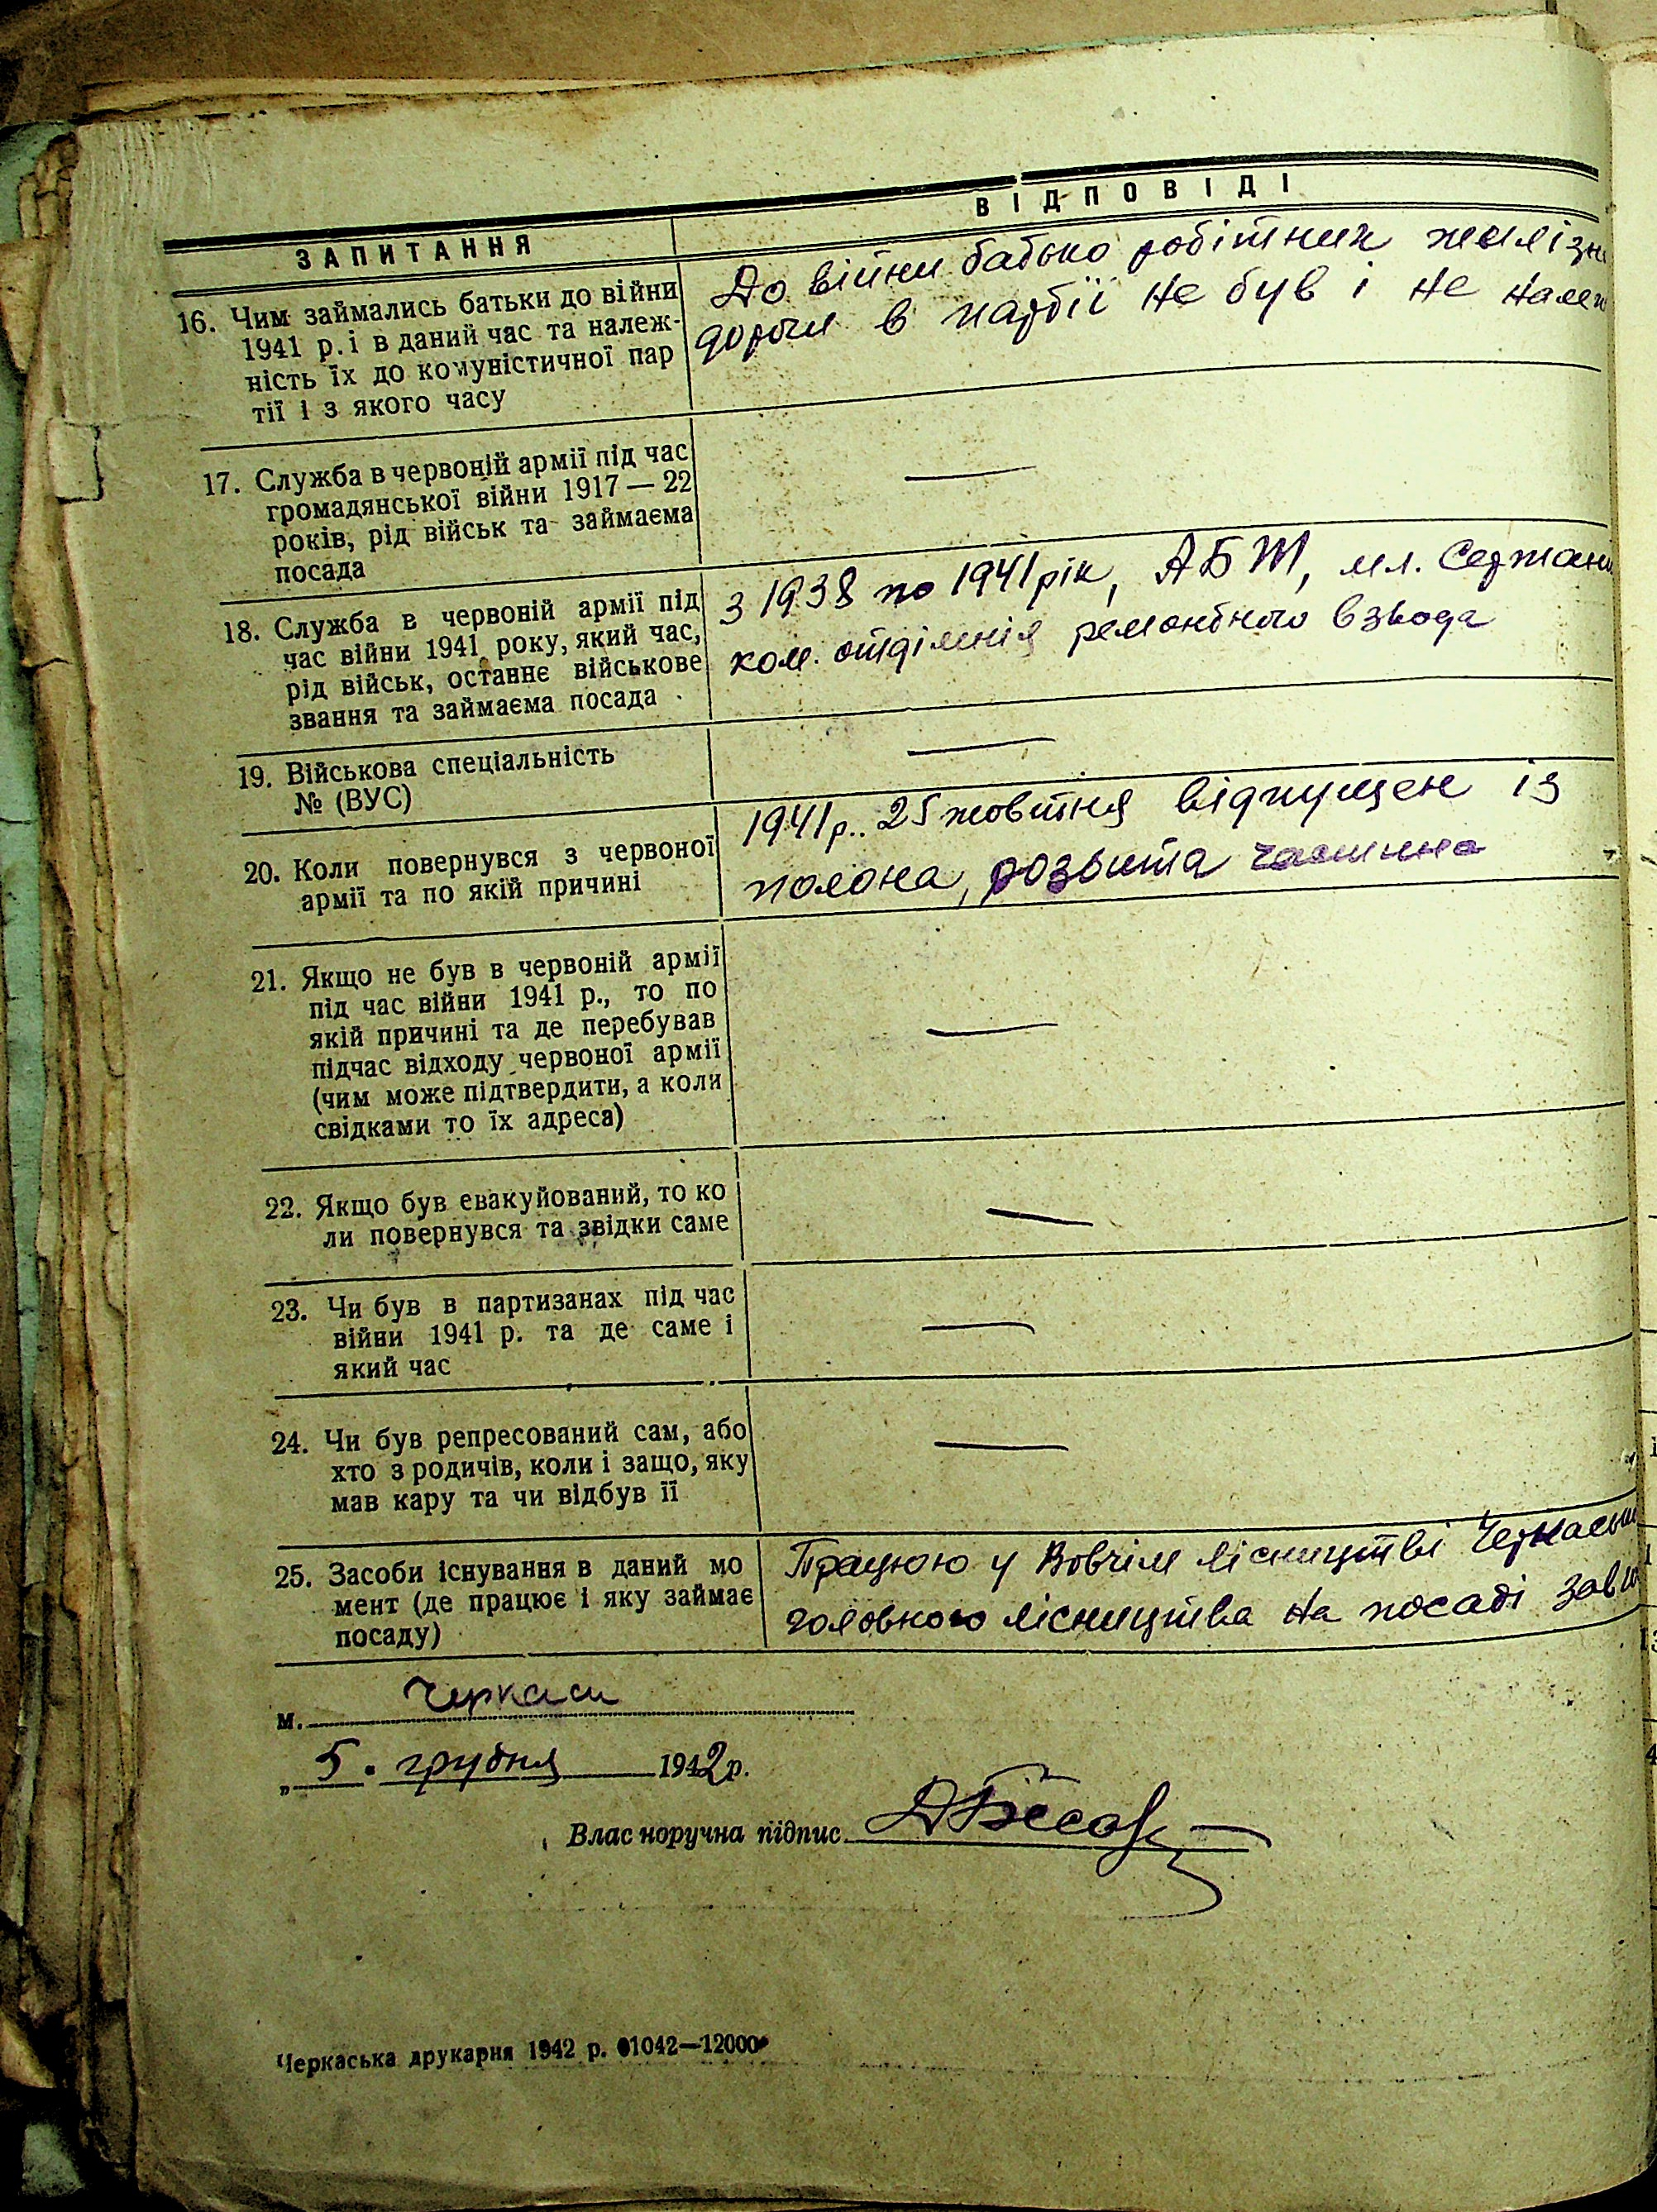 ЗАПИТАННЯ
ВІДПОВІДІ
16. Чим займались батьки до війни
1941 р. і в даний час та належ-
ність їх до комуністичної пар
тії і з якого часу
До війни батько робітник желізн
дороги в партії не був і не належ
17. Служба в червоній армії під час
громадянської війни 1917 — 22
років, рід військ та займаєма
посада
—
18. Служба в червоній армії під
час війни 1941 року, який час,
рід військ, останнє військове
звання та займаєма посада
З 1938 по 1941 рік, АБТ, мл. Сержант
ком. отділенія ремонтного взвода
19. Військова спеціальність
№ (ВУС)
—
20. Коли повернувся з червоної
армії та по якій причині
1941 р. 25 жовтня відпущен із
полона, розбита частина
21. Якщо не був в червоній армії
під час війни 1941 р., то по
якій причині та де перебував
підчас відходу червоної армії
(чим може підтвердити, а коли
свідками то їх адреса)
—
22. Якщо був евакуйований, то ко
ли повернувся та звідки саме
—
23. Чи був в партизанах під час
війни 1941 р. та де саме і
який час
—
24. Чи був репресований сам, або
хто з родичів, коли і защо, яку
мав кару та чи відбув її
—
25. Засоби існування в даний мо
мент (де працює і яку займає
посаду)
Працюю у Вовчім лісництві Черкаськ
головного лісництва на посаді
м. Черкаси
„ 5. грудня 1942 р.
Власноручна підпис
Черкаська друкарня 1942 р. 01042—12000